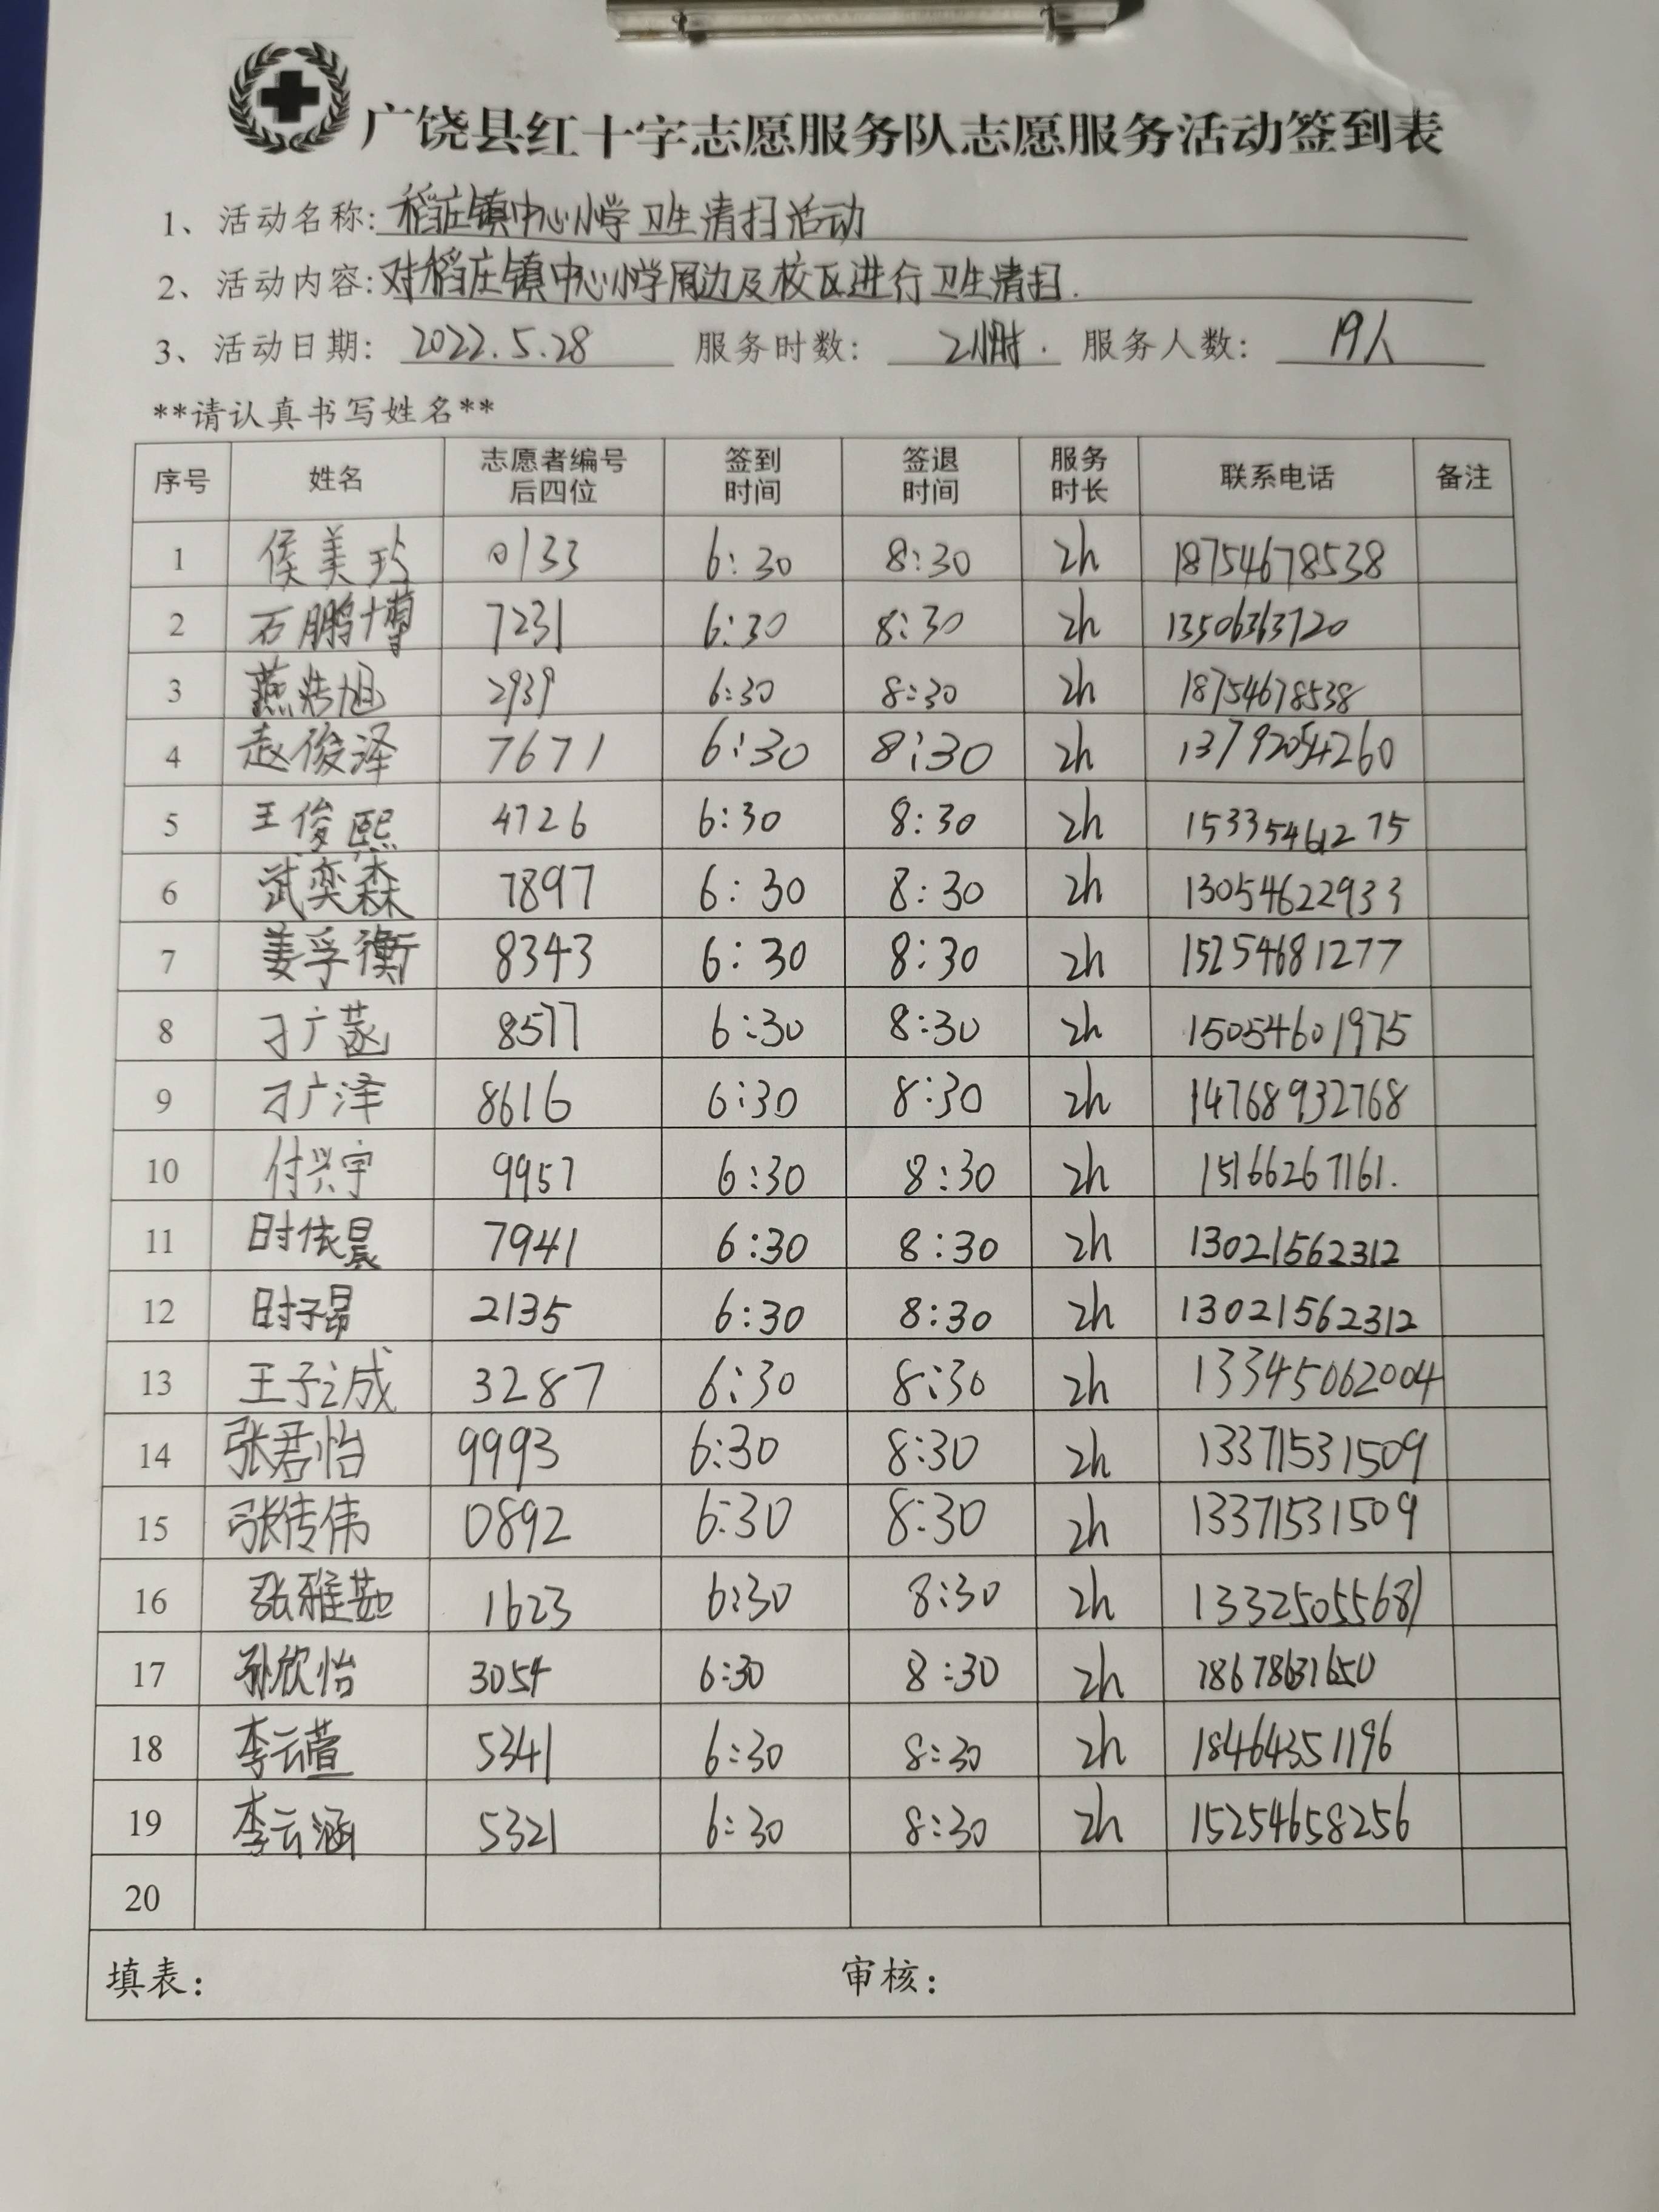 广饶县红十字志愿服务队志愿服务活动签到表
1、活动名称: 稻庄镇中心小学卫生清扫活动
2、活动内容: 对稻庄镇中心小学周边及校区进行卫生清扫.
3、活动日期: 2022.5.28 服务时数: 2小时. 服务人数: 19人
**请认真书写姓名**
序号 姓名 志愿者编号后四位 签到时间 签退时间 服务时长 联系电话 备注
1 侯美玲 0133 6:30 8:30 2h 18754678538
2 石鹏博 7231 6:30 8:30 2h 13506363720
3 燕浩旭 2939 6:30 8:30 2h 18754678538
4 赵俊泽 7671 6:30 8:30 2h 13792054260
5 王俊熙 4726 6:30 8:30 2h 15335461275
6 武奕霖 7897 6:30 8:30 2h 13054622933
7 姜孚衡 8343 6:30 8:30 2h 15254681277
8 刁广菡 8577 6:30 8:30 2h 15054601975
9 刁广泽 8616 6:30 8:30 2h 14768932768
10 付兴宇 9957 6:30 8:30 2h 15166267161.
11 时依晨 7941 6:30 8:30 2h 13021562312
12 时子昂 2135 6:30 8:30 2h 13021562312
13 王子之成 3287 6:30 8:30 2h 13345062004
14 张君怡 9993 6:30 8:30 2h 13371531509
15 张传伟 0892 6:30 8:30 2h 13371531509
16 张雅茹 1623 6:30 8:30 2h 13325055681
17 孙欣怡 3054 6:30 8:30 2h 18678631650
18 李云萱 5341 6:30 8:30 2h 18464351196
19 李云涵 5321 6:30 8:30 2h 15254658256
20
填表: 审核: